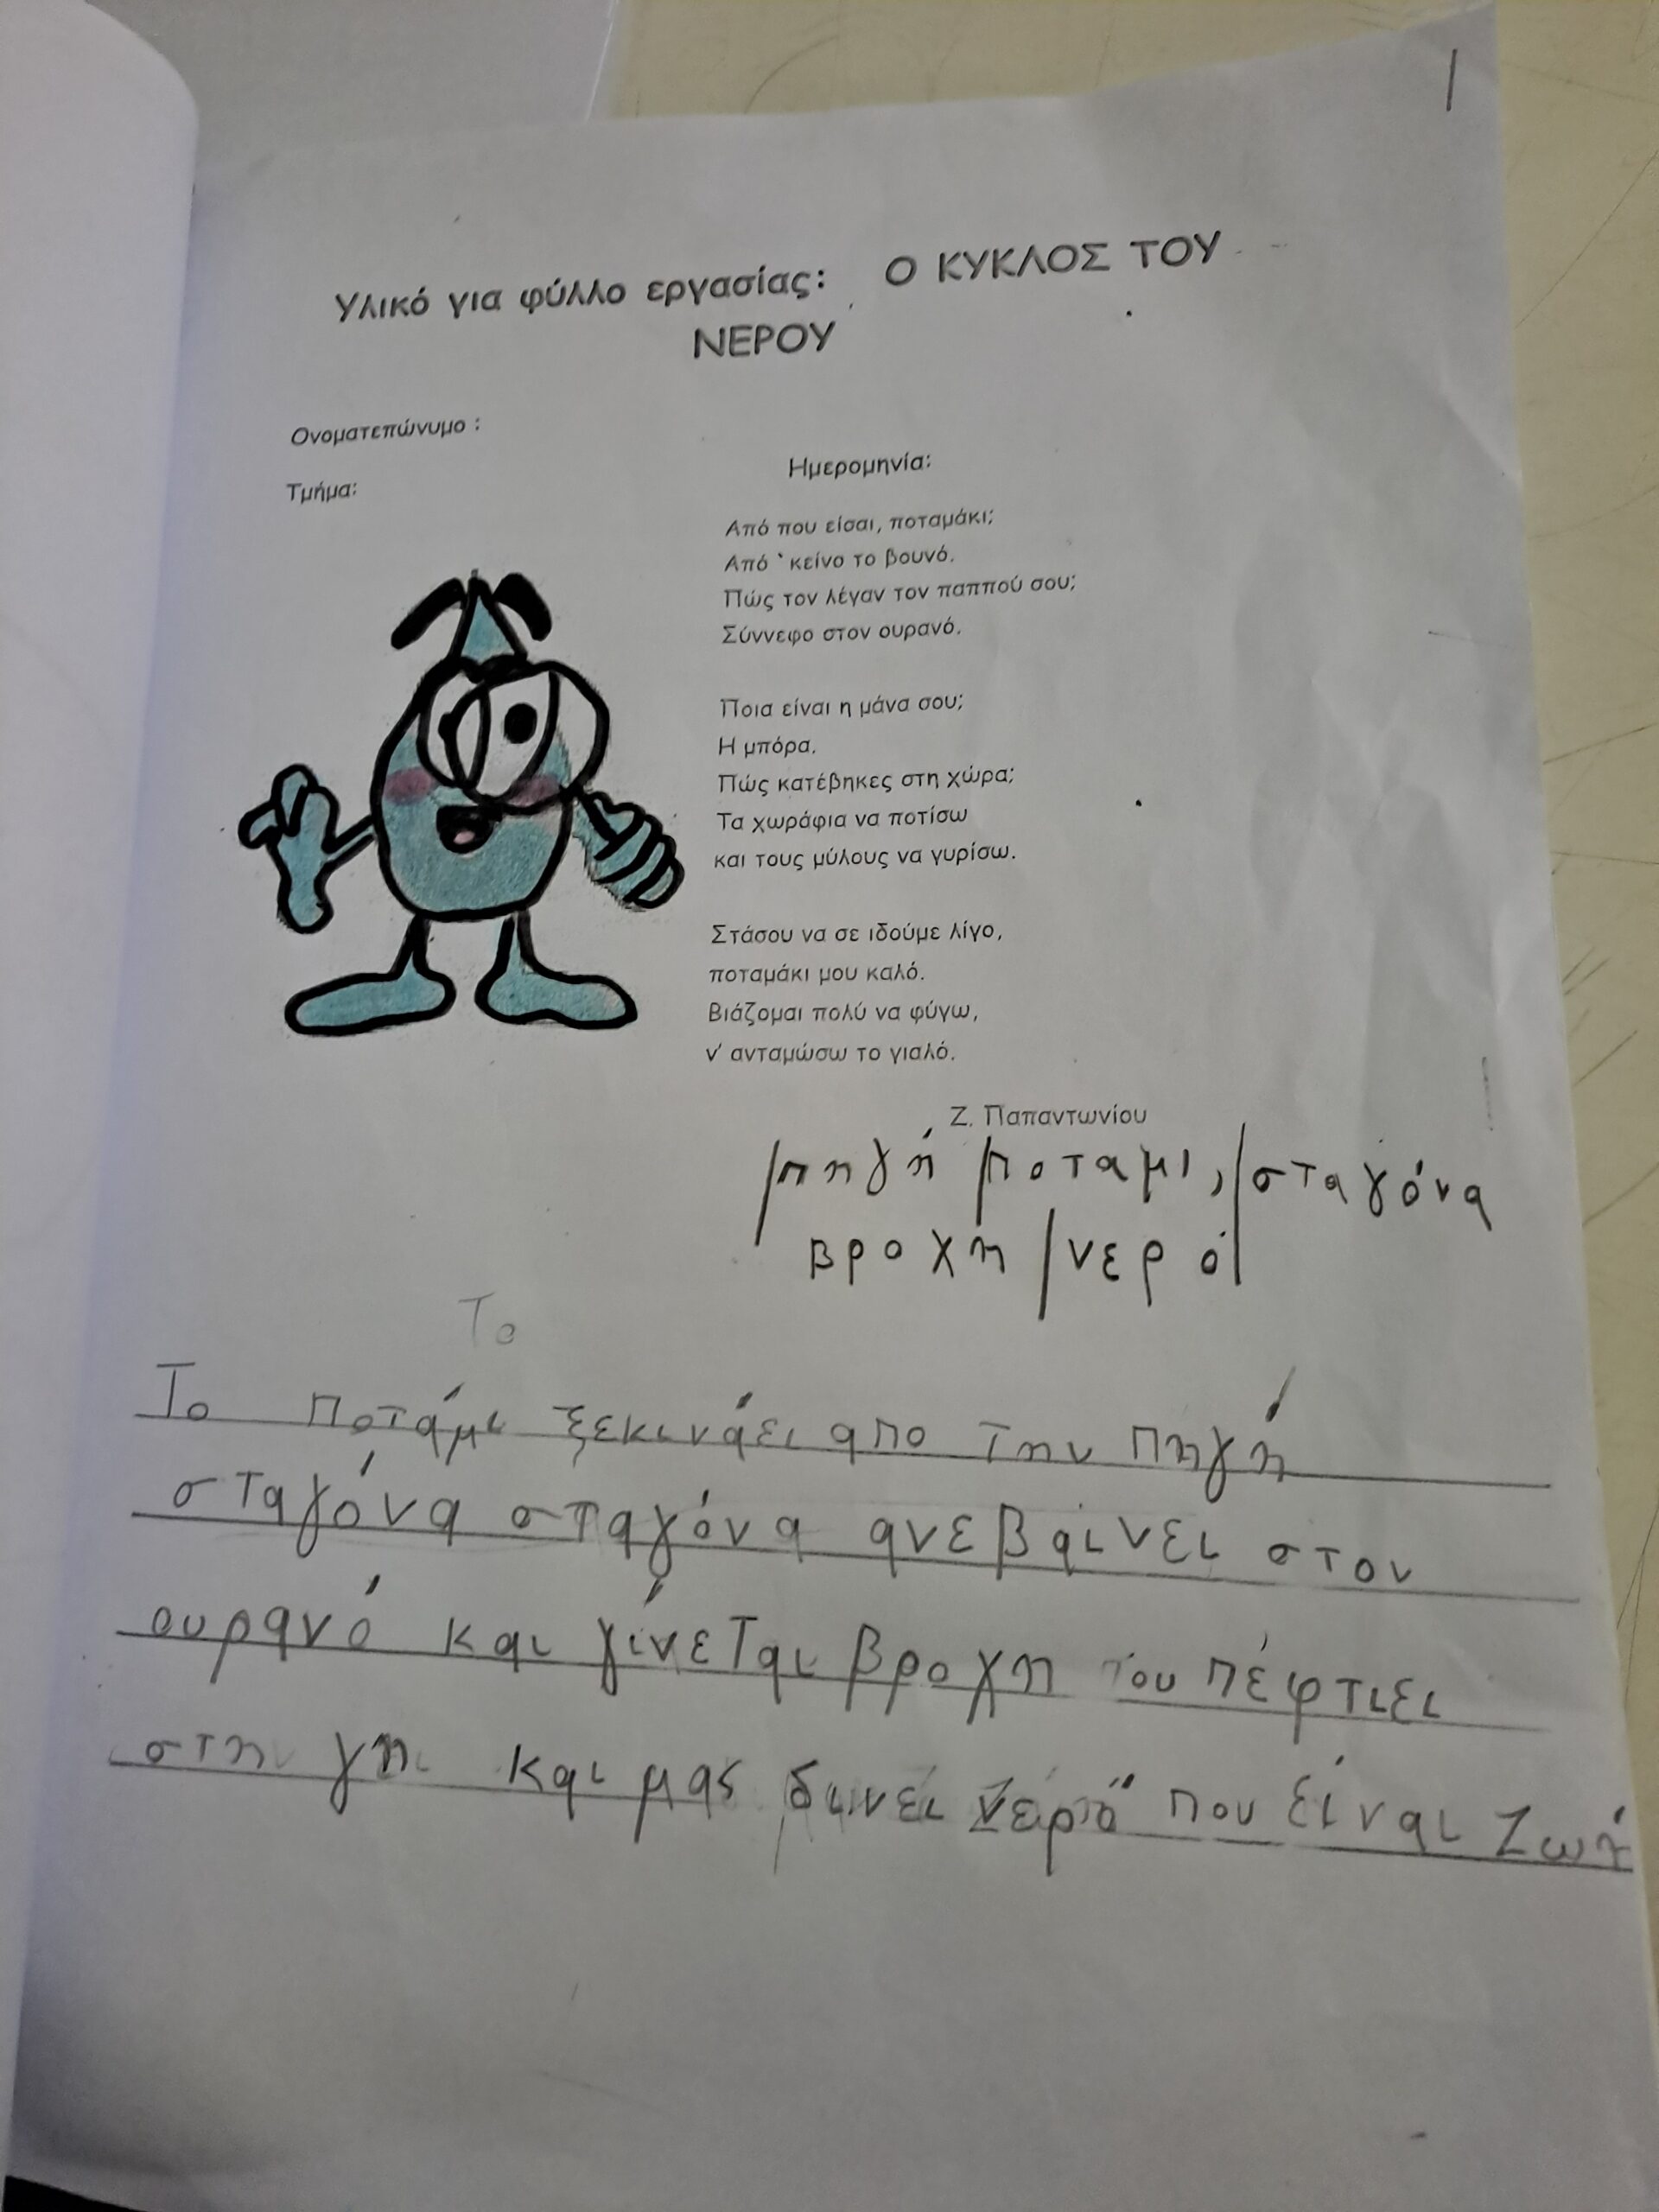 Υλικό για φύλλο εργασίας: Ο ΚΥΚΛΟΣ ΤΟΥ
ΝΕΡΟΥ
Ονοματεπώνυμο :
Ημερομηνία:
Τμήμα:
Από που είσαι, ποταμάκι;
Από ‛κείνο το βουνό.
Πώς τον λέγαν τον παππού σου;
Σύννεφο στον ουρανό.
Ποια είναι η μάνα σου;
Η μπόρα.
Πώς κατέβηκες στη χώρα;
Τα χωράφια να ποτίσω
και τους μύλους να γυρίσω.
Στάσου να σε ιδούμε λίγο,
ποταμάκι μου καλό.
Βιάζομαι πολύ να φύγω,
ν' ανταμώσω το γιαλό.
Ζ. Παπαντωνίου
/πηγή /ποταμι, /σταγόνα
βροχη /νερό/
Το
Το ποτάμι ξεκινάει απο την πηγή
σταγόνα σταγόνα ανεβαινει στον
ουρανό και γίνεται βροχη που πέφτιει
στη γη και μας δινει νερό που είναι Ζωή